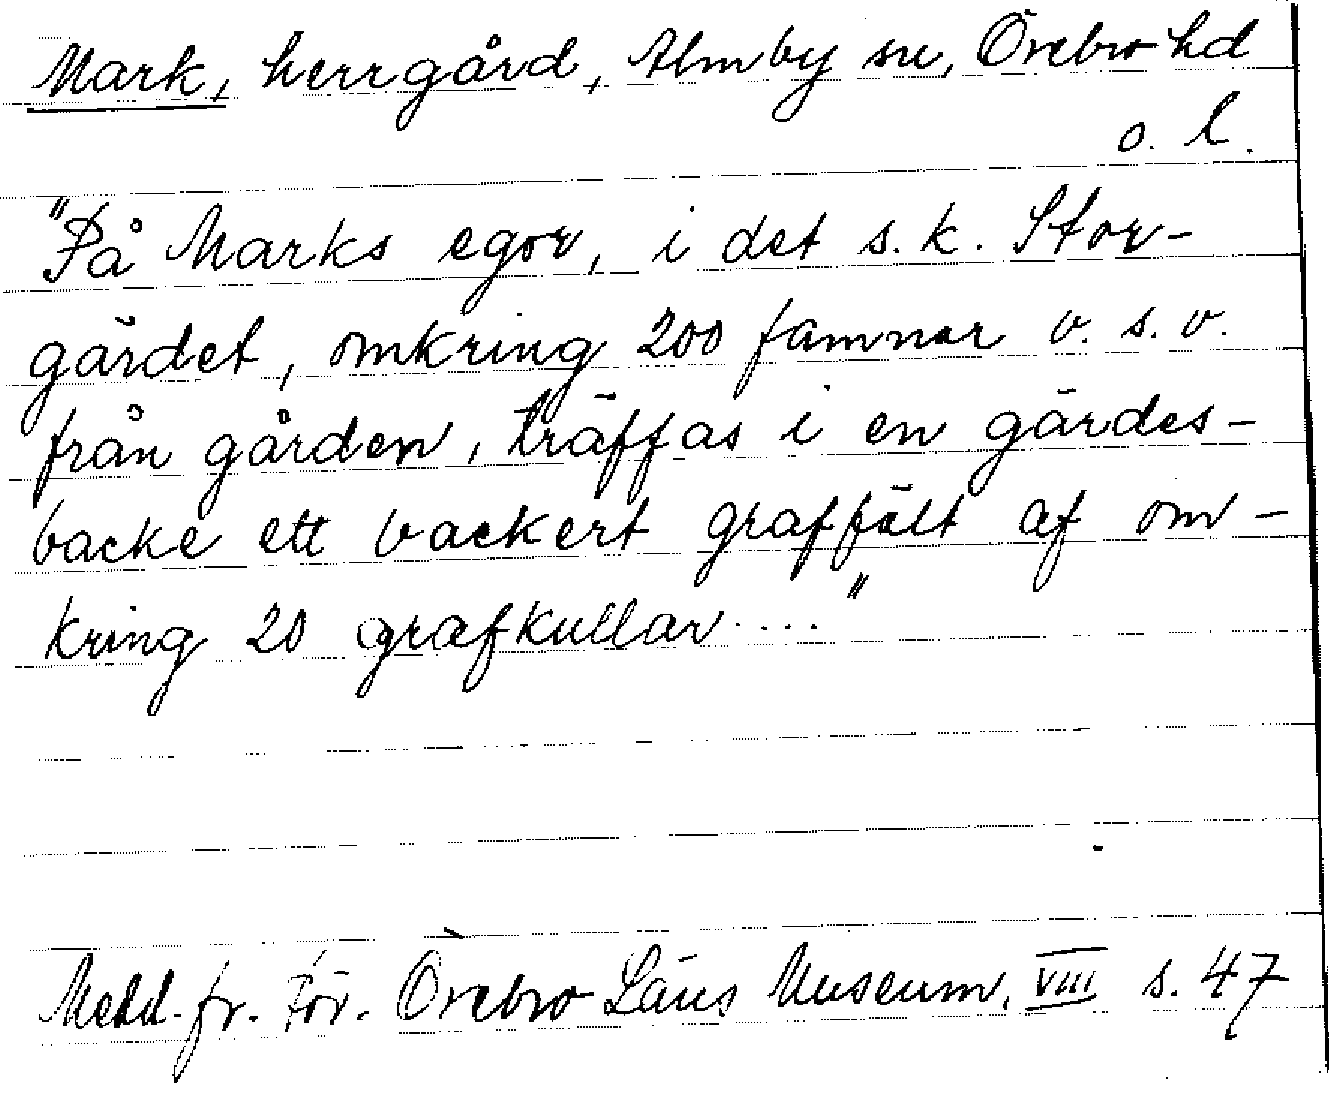 Mark, herrgård, Almby sn, Örebro hd
o. l.
"På Marks egor, i det s.k. Stor-
gärdet, omkring 200 famnar v. s. v.
från gården, träffas i en gärdes-
backe ett vackert graffält af om-
kring 20 grafkullar...."
Medd. fr. För. Örebro Läns Museum, VIII s. 47